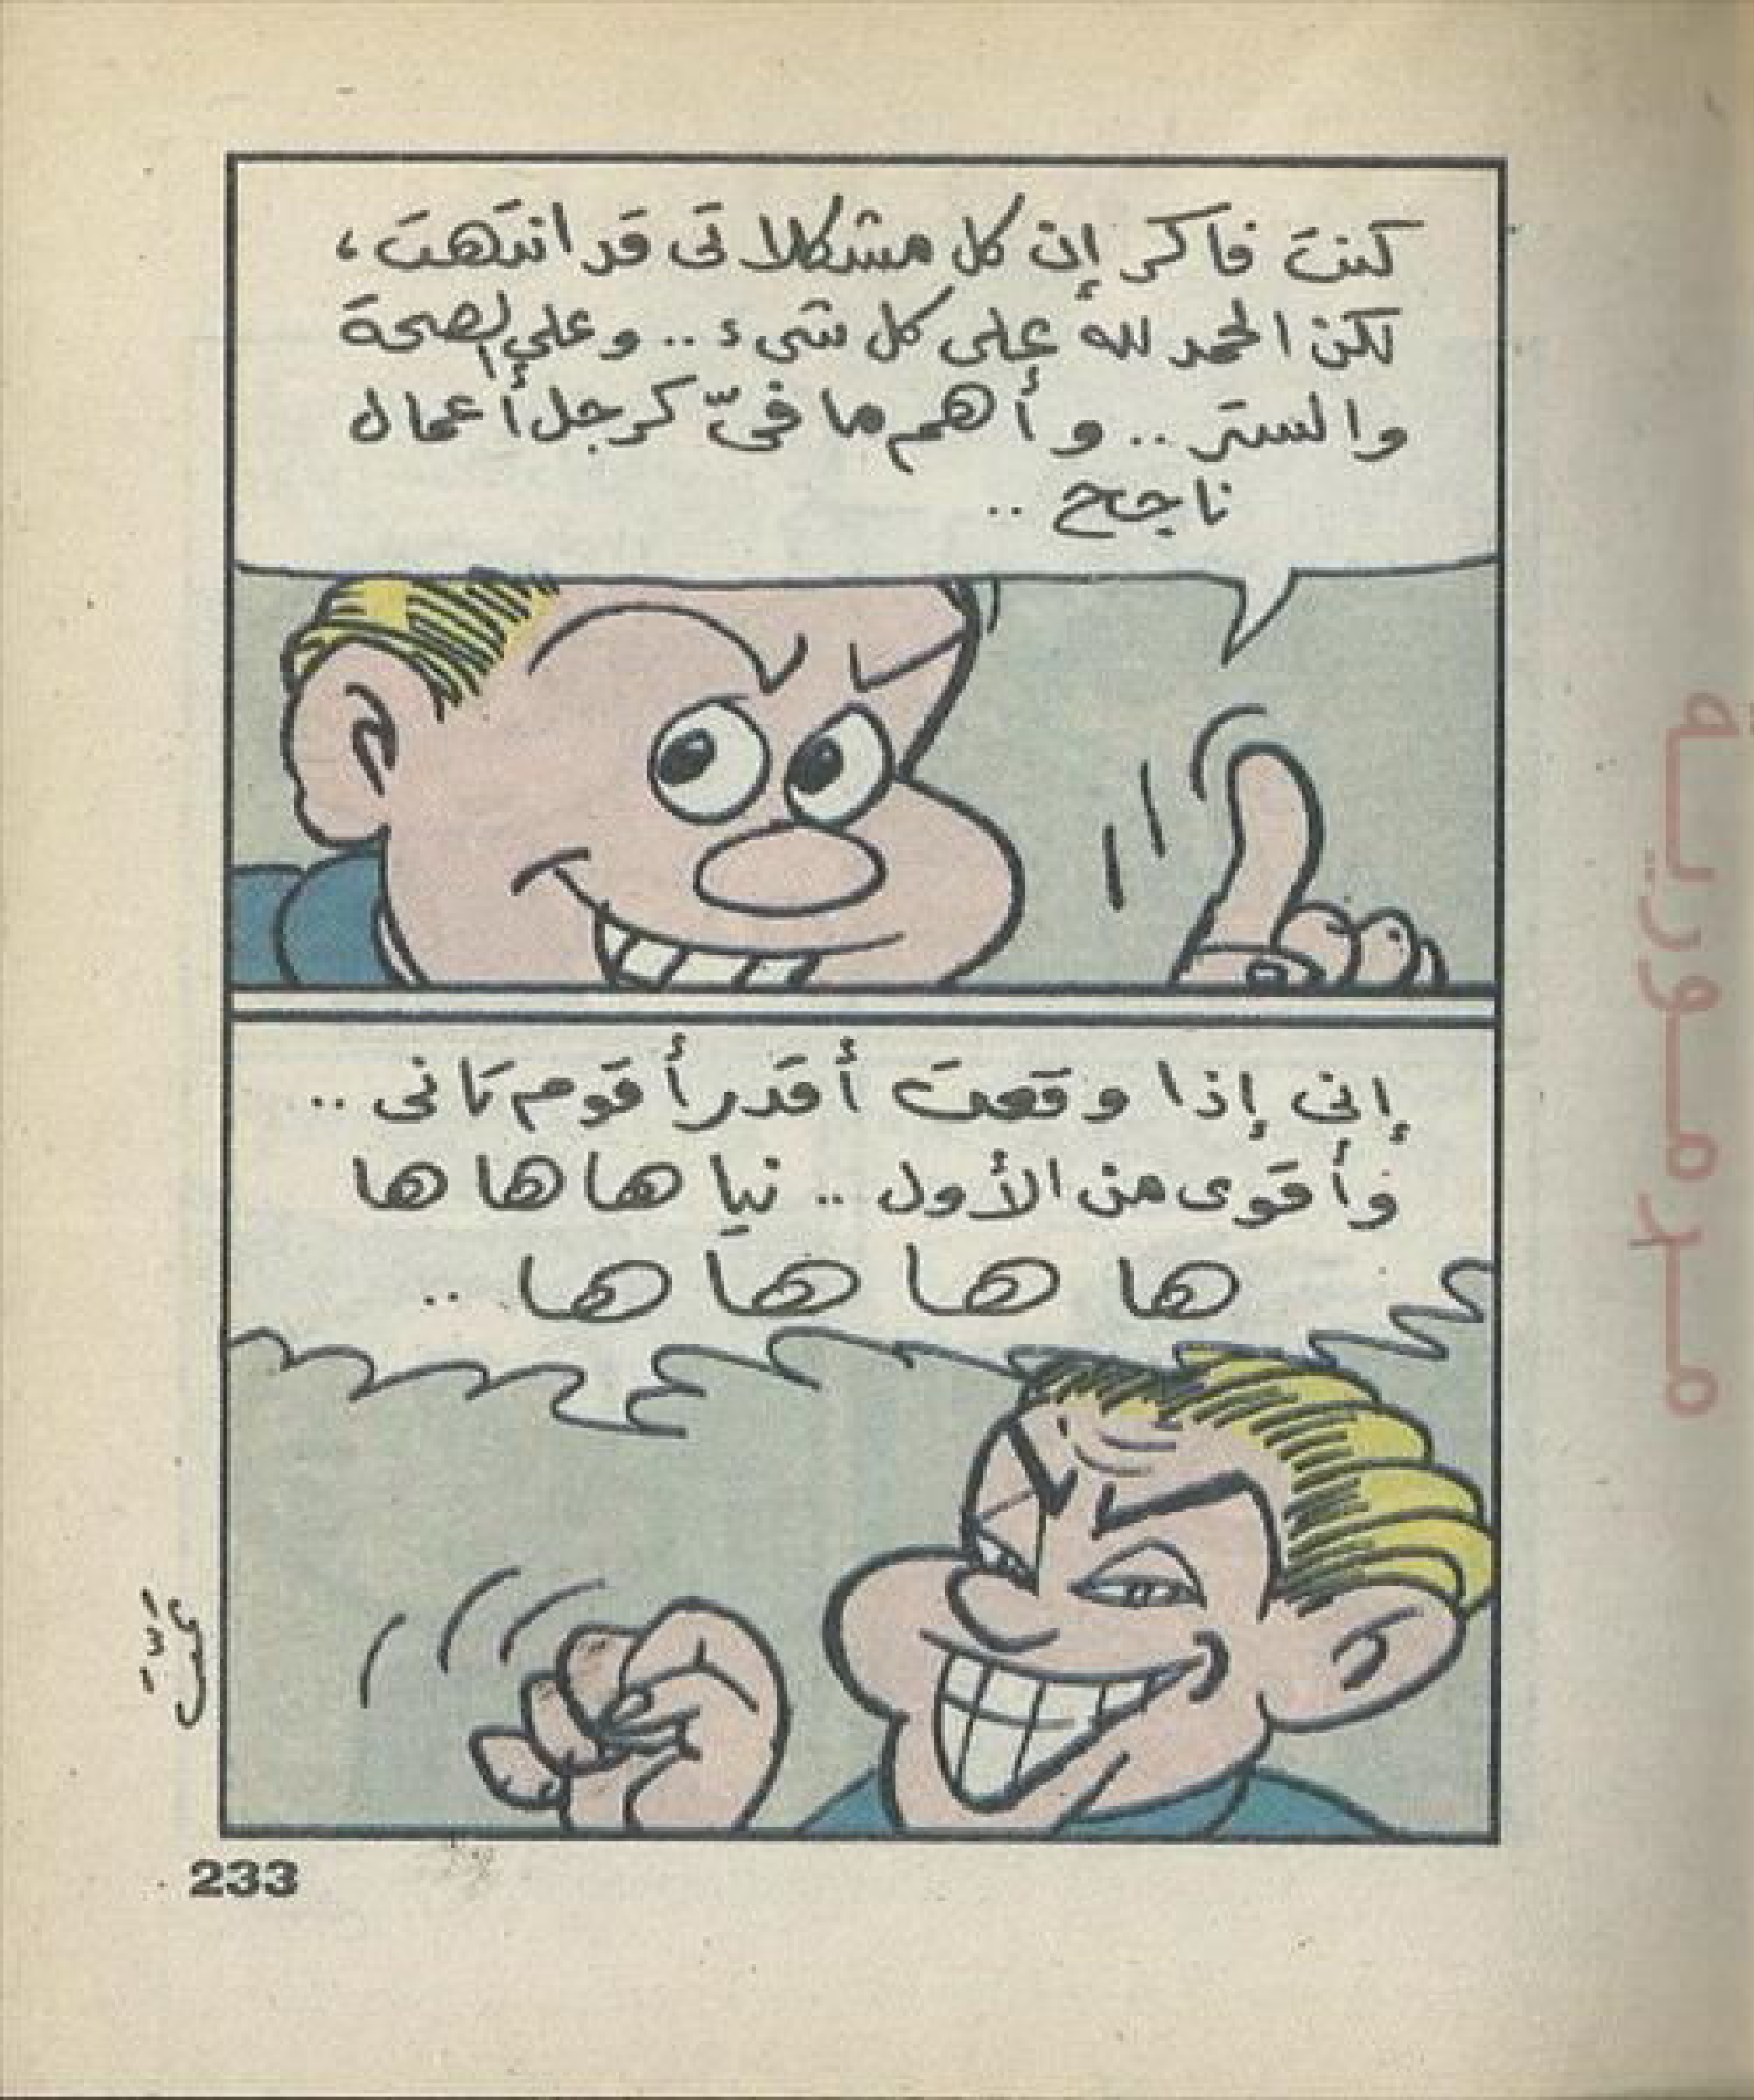 كنت فاكر إن كل مشكلاتى قد انتهت،
لكن الحمد لله على كل شىء .. وعلى الصحة
والستر .. وأهم ما فىّ كرجل أعمال
ناجح ..
إنى إذا وقعت أقدر أقوم تانى ..
وأقوى من الأول .. نيا ها ها ها
ها ها ها ها ..
233